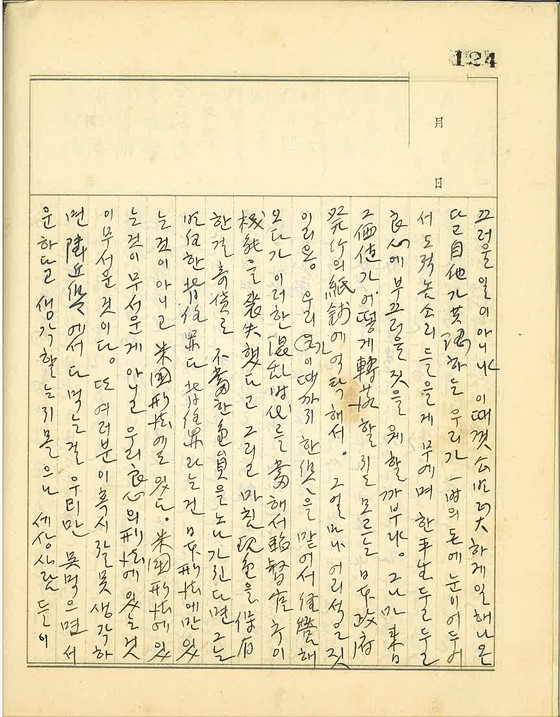 124
月
日
끄러울 일이 아니냐 이때껏 公明正大하게 일해나온
다고 自他가 共認하는 우리가 一時의 돈에 눈이 어두어
서 도적놈 소리 듣는게 무에며 한平生
良心에 부끄러운 짓을 왜 할까부냐. 그나마 來日
그 價値가 어떻게 할 지도 모르는 日本政府
의 紙錢에 억탁해서. 그 얼마나 어리석은 짓
이리오. 우리가 이때까지 한 을 맡어서 經營해
오다가 이러한 混乱 를 當해서 監督官
機能을 喪失했다고 그리고 마침 現金을 保有
한걸 奇貨로 不當한 金員을 노나가진다면 그는
背任罪다 背任罪라는건 日本刑法에만 있
는 것이 아니고 米國刑法에도 있다. 米國刑法에 있
는것이 무서운게 아니고 우리 良心의 刑法에 있는것
이 무서운 것이다. 또 여러분이 혹시 잘못 생각하
면 에서 다 먹는걸 우리만 못먹으면 서
운하다고 생각할는지 몰으나 세상사람들이